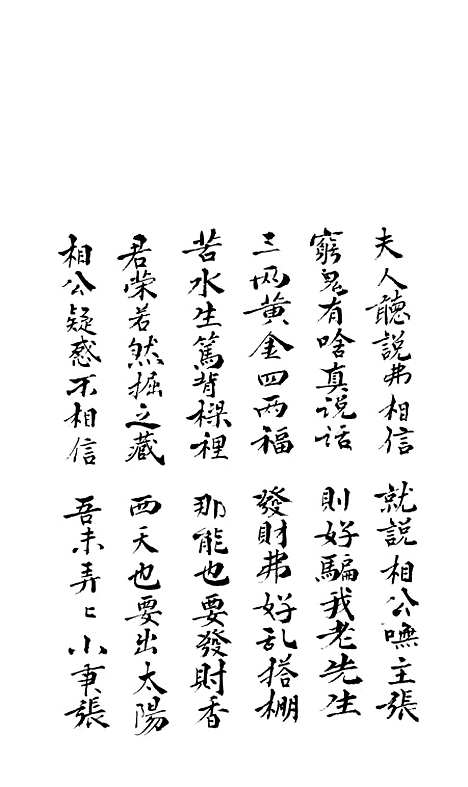 夫人聽説弗相信 就説相公嘸主張
窮鬼有啥真説话 則好騙我老先生
三网黄金四两福 發財弗好乱搭棚
苦水生篤背樑裡 那能也要發財香
君荣若然掘之藏 西天也要出太陽
相公疑惑不相信 吾未弄〻小事張